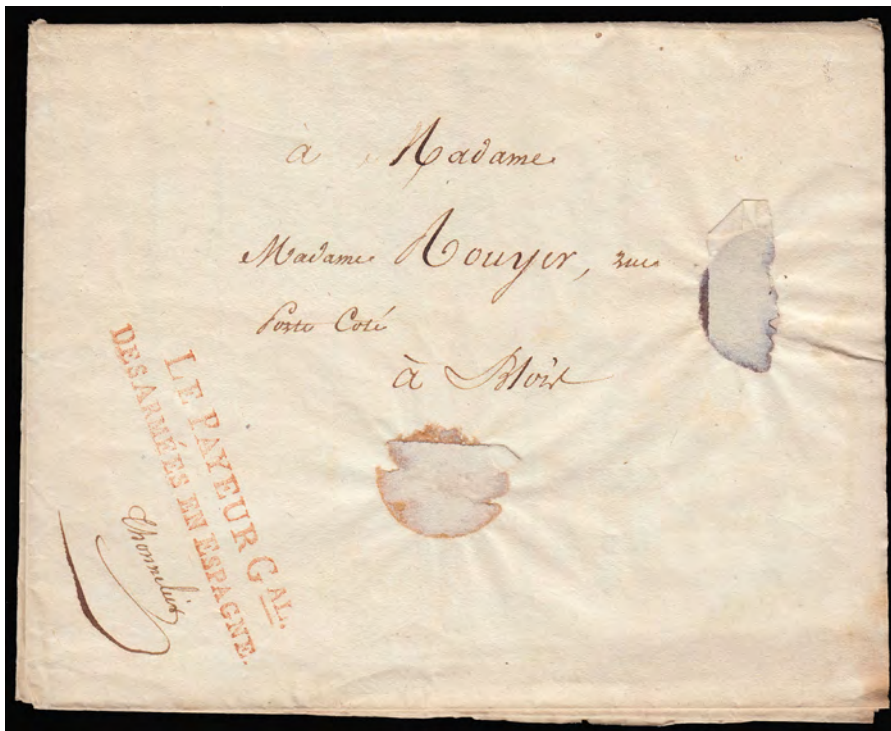 à Madame
Madame Rouyer, rue
Porte Coté
à Blois
LE PAYEUR GAL.
DES ARMÉES EN ESPAGNE.